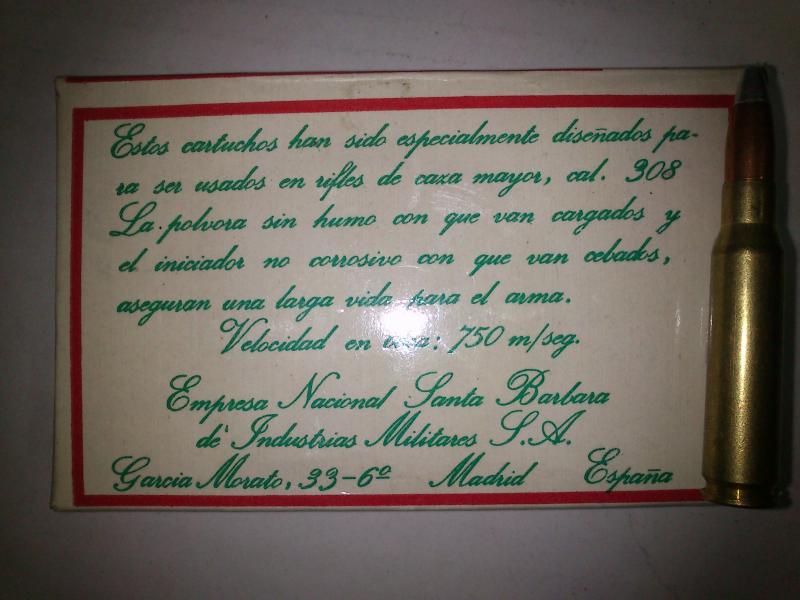 Estos cartuchos han sido especialmente diseñados pa-
ra ser usados en rifles de caza mayor, cal. 308
La polvora sin humo con que van cargados y
el iniciador no corrosivo con que van cebados,
aseguran una larga vida para el arma.
Velocidad en boca: 750 m/seg.
Empresa Nacional Santa Barbara
de Industrias Militares S.A.
Garcia Morato, 33-6º Madrid España